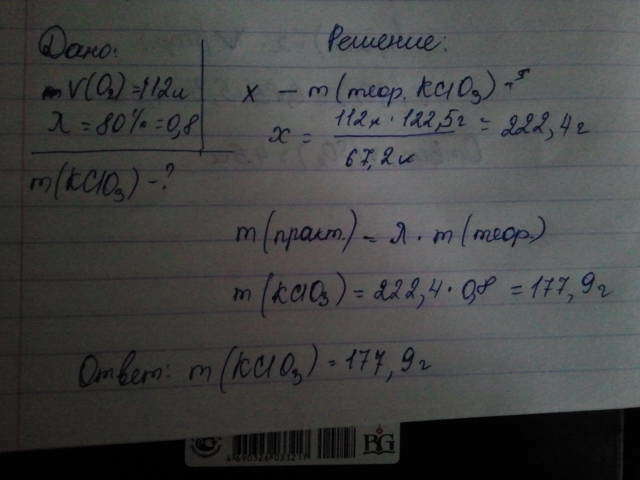 Дано:
V(O₂) = 112 л
λ = 80% = 0,8
m(KClO₃) - ?
Решение:
x — m(теор. KClO₃)
x = 112 л · 122,5 г / 67,2 л = 222,4 г
m(практ.) = λ · m(теор.)
m(KClO₃) = 222,4 · 0,8 = 177,9 г
Ответ: m(KClO₃) = 177,9 г
BG